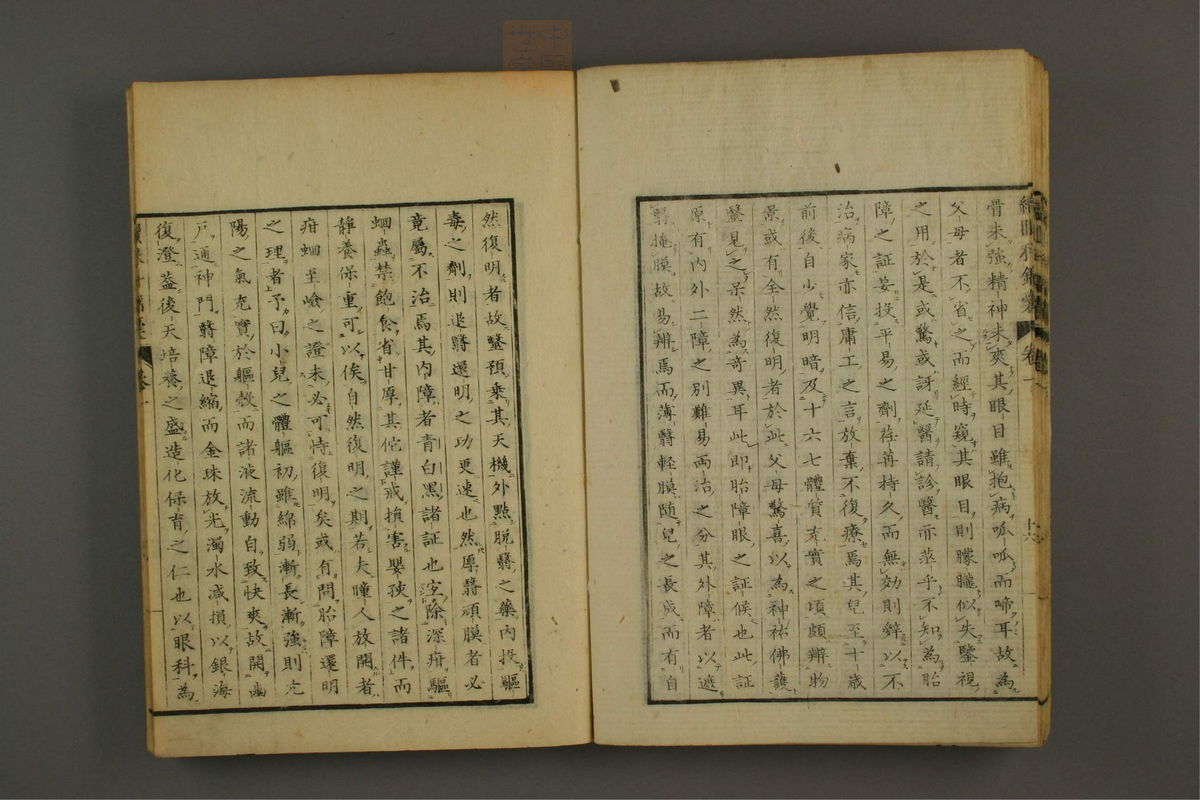 骨未強精神未爽其眼目雖抱病呱呱而啼耳故為
父母者不省之而經時窺其眼目則朦朧似失鑒視
之用於是或驚或訝延醫請診醫亦茫乎不知為胎
障之証妄投平易之劑荏苒持久而無効則辭以不
治病家亦信庸工之言放棄不復療焉其兒至十歲
前後自少覺明暗及十六七體質充實之頃頗辨物
景或有全然復明者於此父母驚喜以為神祐佛護
醫見之呆然為奇異耳此即胎障眼之証候也此証
原有內外二障之別難易兩治之分其外障者以遮
翳掩膜故易辨焉而薄翳輕膜隨兒之長歲而有自
十六
然復明者故醫預乘其天機外點脫翳之藥內投驅
毒之劑則退翳還明之功更速也然厚翳頑膜者必
竟屬不治焉其內障者青白黑諸証也宜除深疳驅
蛔蟲禁飽食省甘厚其佗謹戒損害嬰孩之諸件而
靜養保重可以俟自然復明之期若夫瞳人放開者
疳蛔至嶮之證未必可恃復明矣或有問胎障還明
之理者予曰小兒之體軀初雖綿弱漸長漸強則元
陽之氣充實於軀殼而諸液流動自致快爽故開幽
戶通神門翳障退縮而金珠放光濁水減損以銀海
復澄蓋後天培養之盛造化保育之仁也以眼科為